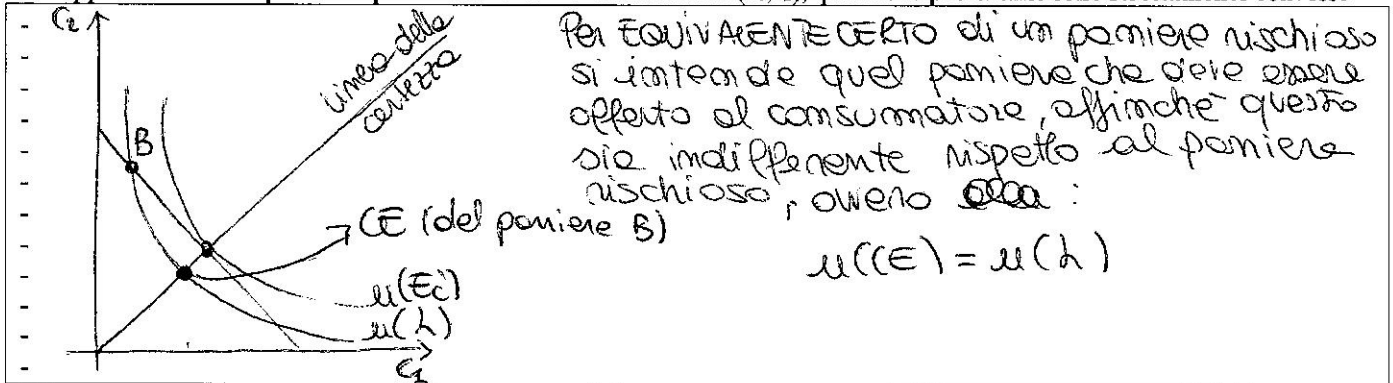 C₂
linea della
certezza
B
CE (del paniere B)
u(Ec)
u(L)
C₁
Per EQUIVALENTE CERTO di un paniere rischioso
si intende quel paniere che deve essere
offerto al consumatore, affinché questo
sia indifferente rispetto al paniere
rischioso, ovvero :
u(CE) = u(L)